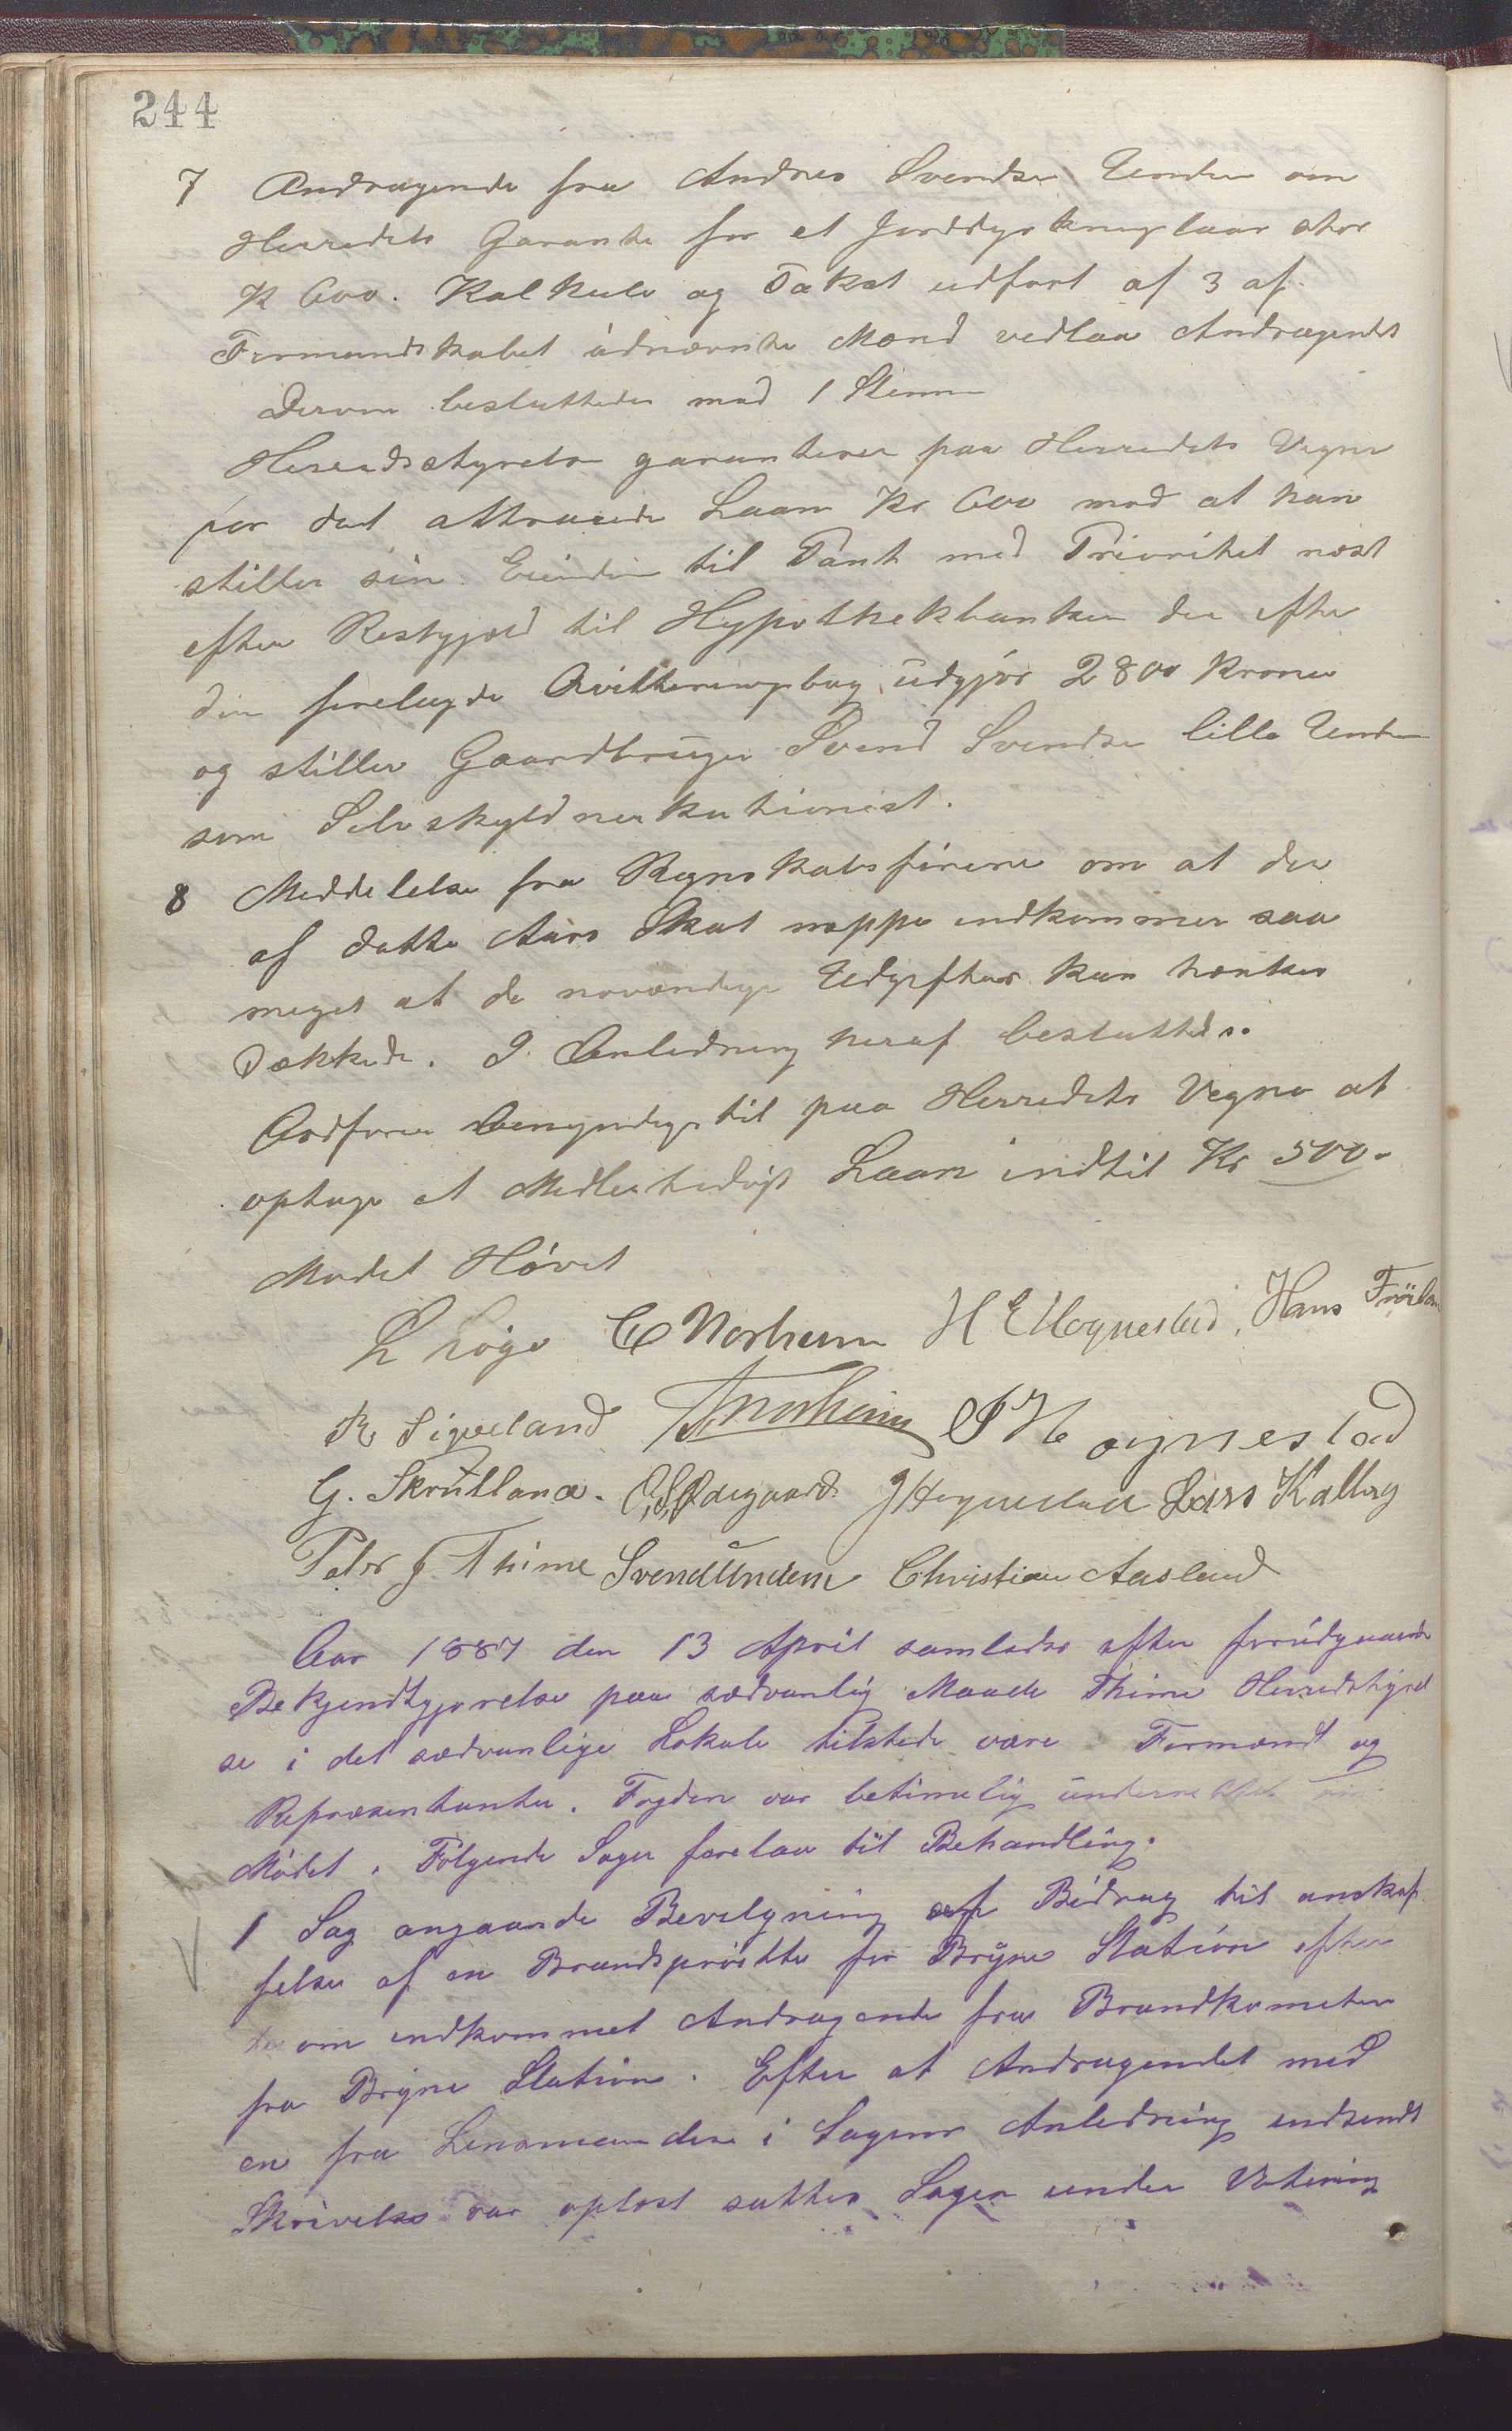 244
7 Andragende fra Andres Svendsen Undem om
Herredets Garante for et Jorddyrkningslaan stor
K 600. Kalkule og Takst udført af 3 af
Formandskabet udnævnte Mænd vedlaa Andragendet
Derom besluttedes mod 1 Stemme
Herredsstyrelsen garanterer paa Herredets Vegne
for det attraaede Laan Kr 600 mod at han
stiller sin Eiendom til Pant med Prioritet næst
efter Restgjæld til Hypothekbanken der efter
den forelagde Qvitteringsbog udgjør 2800 Kroner
og stiller Gaardbruger Svend Svendsen lille Undem
som Selvskyldnerkautionist.
8 Meddelelse fra Regnskabsføreren om at der
af dette Aars Skat neppe indkommer saa
meget at de nøvendige Udgifter kan tænkes
Dækkede. I Anledning heraf besluttedes.
Ordføren bemyndiges til paa Herredets Vegne at
optage et Medlertidigt Laan indtil Kr 500.-
Mødet Hævet
L Löge C Norheim H E Høgnestad, Hans Fröiland
R Sigveland Norheim S H øgnestad
G. Skrutland. O. S. Ødegaard. J Høgnestad Lars Kalberg
Peder J Thime Svend Undem Christian Aasland
Aar 1887 den 13 April samledes efter forudgaaende
Bekjendtgjørelse paa sædvanlig Maade Thime Herredstyrel
se i det sædvanlige Lokale tilstede vare Formænd og
Repræsentanter. Fogden var betimelig underrettet om
Mødet. Følgende Sager forelaa til Behandling.
1 Sag angaaende Bevilgning af Bidrag til anskaf
felse af en Brandsprøitte for Bryne Station efter
derom indkommet Andragende fra Brandkometen
fra Bryne Station. Efter at Andragendet med
en fra Lensmanden i Sagens Anledning indsendt
Skrivelse var oplæst sattes Sagen under Votering